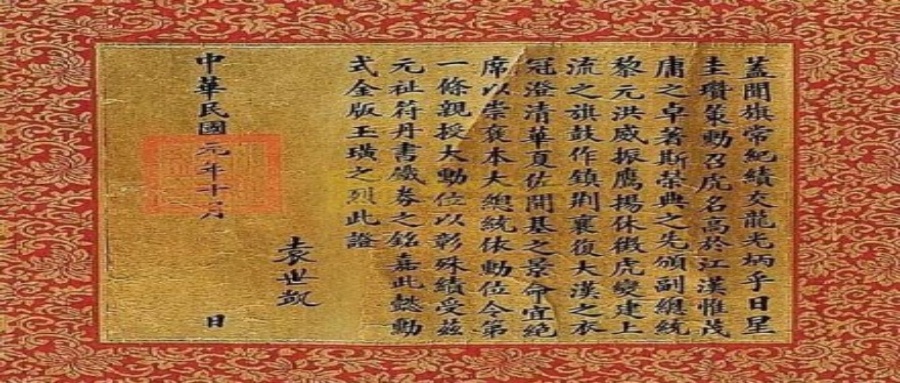 蓋聞旂常紀績交龍光炳乎日星
圭瓚策勳召虎名高於江漢惟茂
庸之卓著斯榮典之先頒副總統
黎元洪威振鷹揚休徵虎變建上
流之旗鼓作鎮荆襄復大漢之衣
冠澄清華夏佐開基之景命宜絕
席以崇褒本大總統依勳位令第
一條親授大勳位以彰殊績受茲
元祉符丹書鐵券之銘嘉此懿勳
式金版玉璜之烈此證
中華民國元年十月
袁世凱
日